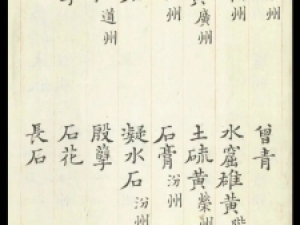 州
州
廣州
州
道州
曾青
水窟雄黃階
土硫黃榮州
石膏汾州
凝水石汾州
殷孽
石花
長石